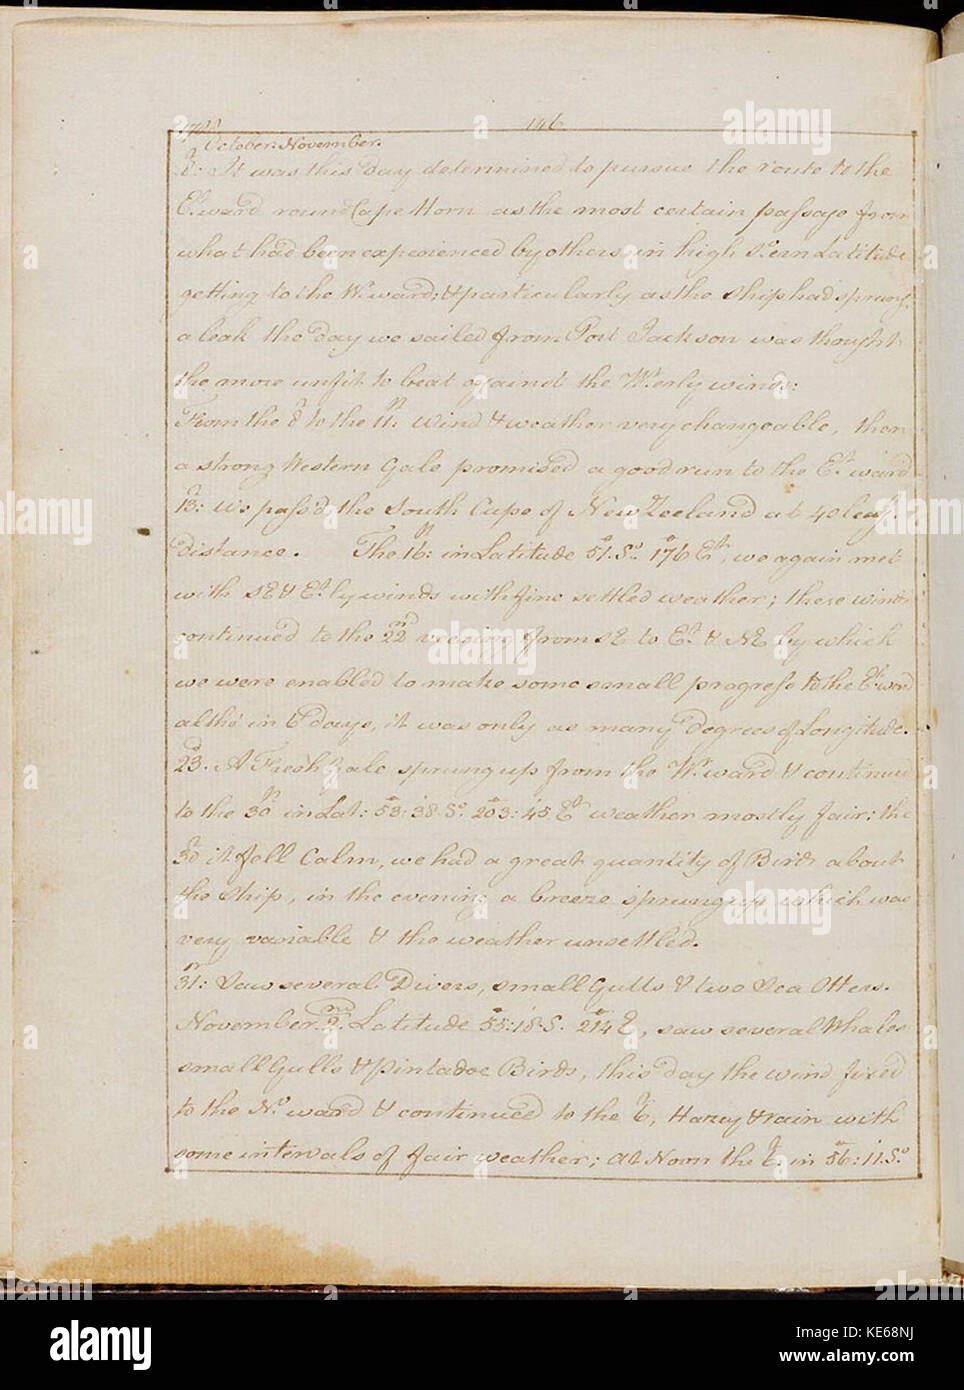 1788
146
October. November.
8: It was this Day determined to pursue the route to the
Et.ward round Cape Horn as the most certain passage from
what had been experienced by others, in high So.ern Latitude
getting to the Wt.ward: & particularly as the Ship had sprung
a leak the Day we sailed from Port Jackson was thought
the more unfit to beat against the Wt.erly winds:
From the 8th to the 11th: Wind & weather very changeable, then
a strong Western Gale promised a good run to the Et.ward
13th: We pass'd the South Cape of New Zeeland at 40 leags.
Distance. The 16th: in Latitude 51°. So. 176° Et., we again met
with SE & Et.ly winds with fine settled weather; these winds
continued to the 22nd veering from SE to Et. & NE by which
we were enabled to make some small progress to the Et.ward
altho' in 6 Days, it was only as many Degrees of Longitude.
23d. A Fresh Gale sprung up from the Wt.ward & continued
to the 30th in Lat: 53°:38' So. 203°:45' Et. weather mostly fair: the
30th it fell Calm, we had a great quantity of Birds about
the Ship, in the evening a breeze sprung up which was
very variable & the weather unsettled.
31st: Saw several Divers, small Gulls & two Sea Otters.
November 2nd. Latitude 55°:18' S. 214° E, saw several Whales
small Gulls & Pintadoe Birds, this Day the wind fixed
to the No.ward & continued to the 6th, Hazey & rain with
some intervals of fair weather; at Noon the 6th. in 56°:11' So.
alamy
a
alamy
Image ID: KE68NJ
www.alamy.com